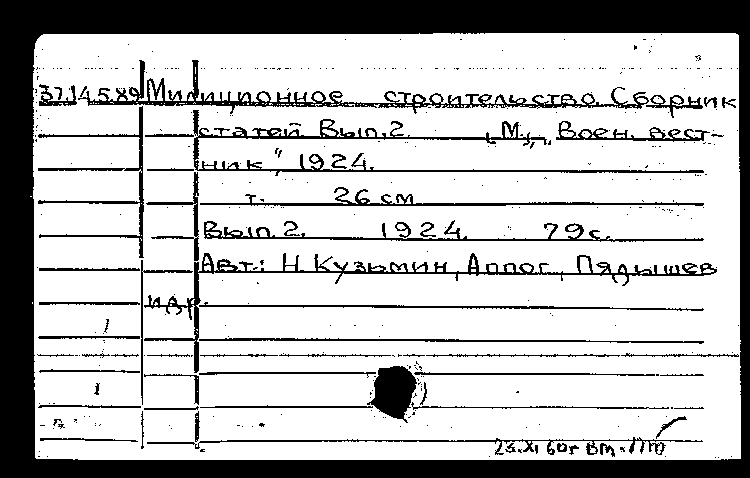 37.14.5.89 Милиционное строительство. Сборник
статей. Вып. 2. [М.], „Воен. вест-
ник", 1924.
т. 26 см
Вып. 2. 1924. 79 с.
Авт.: Н. Кузьмин, Аппог, Пядышев
и др.
1
1
23.XI 60г